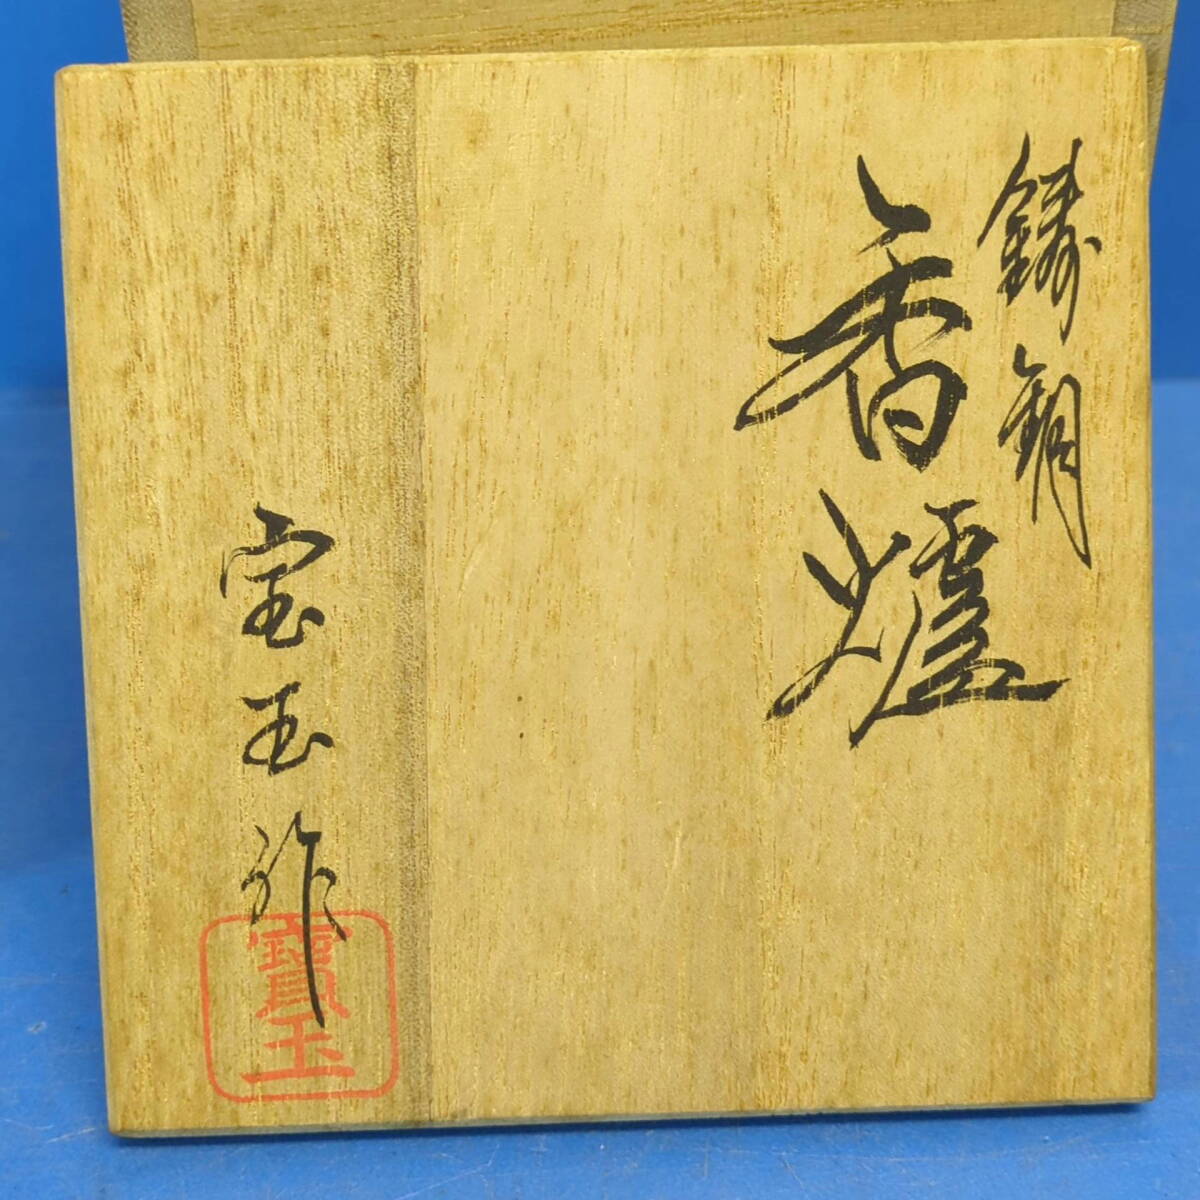 鋳銅
香爐
宝玉作
寶玉